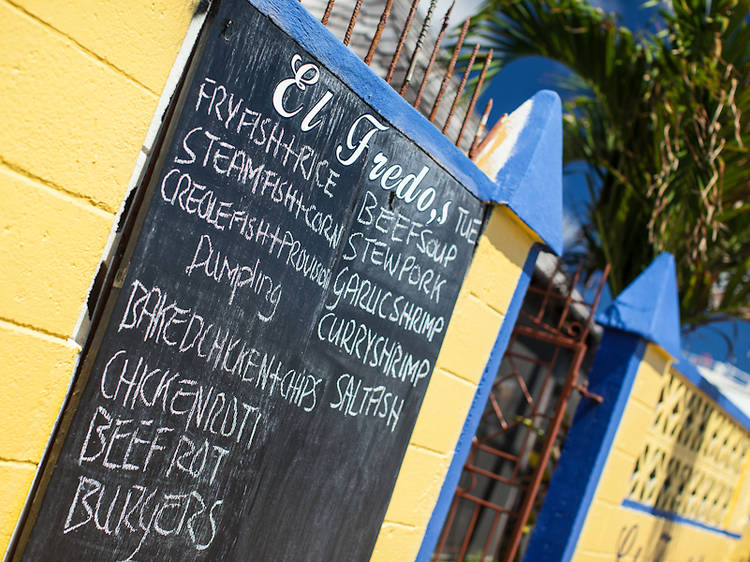 El Fredo,s
TUE
FRYFISH+RICE
STEAMFISH+CORN
CREOLEFISH+PROVISION
Dumpling
BAKEDCHICKEN+CHIPS
CHICKENROTI
BEEFROT
BURGERS
BEEFSOUP
STEWPORK
GARLICSHRIMP
CURRYSHRIMP
SALTFISH